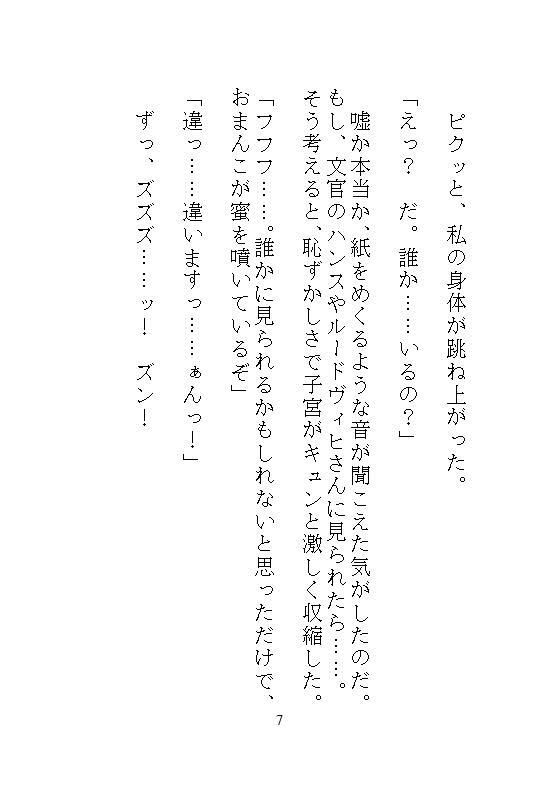 ピクッと、私の身体が跳ね上がった。
「えっ？　だ。誰か……いるの？」
嘘か本当か、紙をめくるような音が聞こえた気がしたのだ。
もし、文官のハンスやルードヴィヒさんに見られたら……。
そう考えると、恥ずかしさで子宮がキュンと激しく収縮した。
「フフフ……。誰かに見られるかもしれないと思っただけで、
おまんこが蜜を噴いているぞ」
「違っ……違いますっ……ぁんっ！」
ずっ、ズズズ……ッ！　ズン！
7